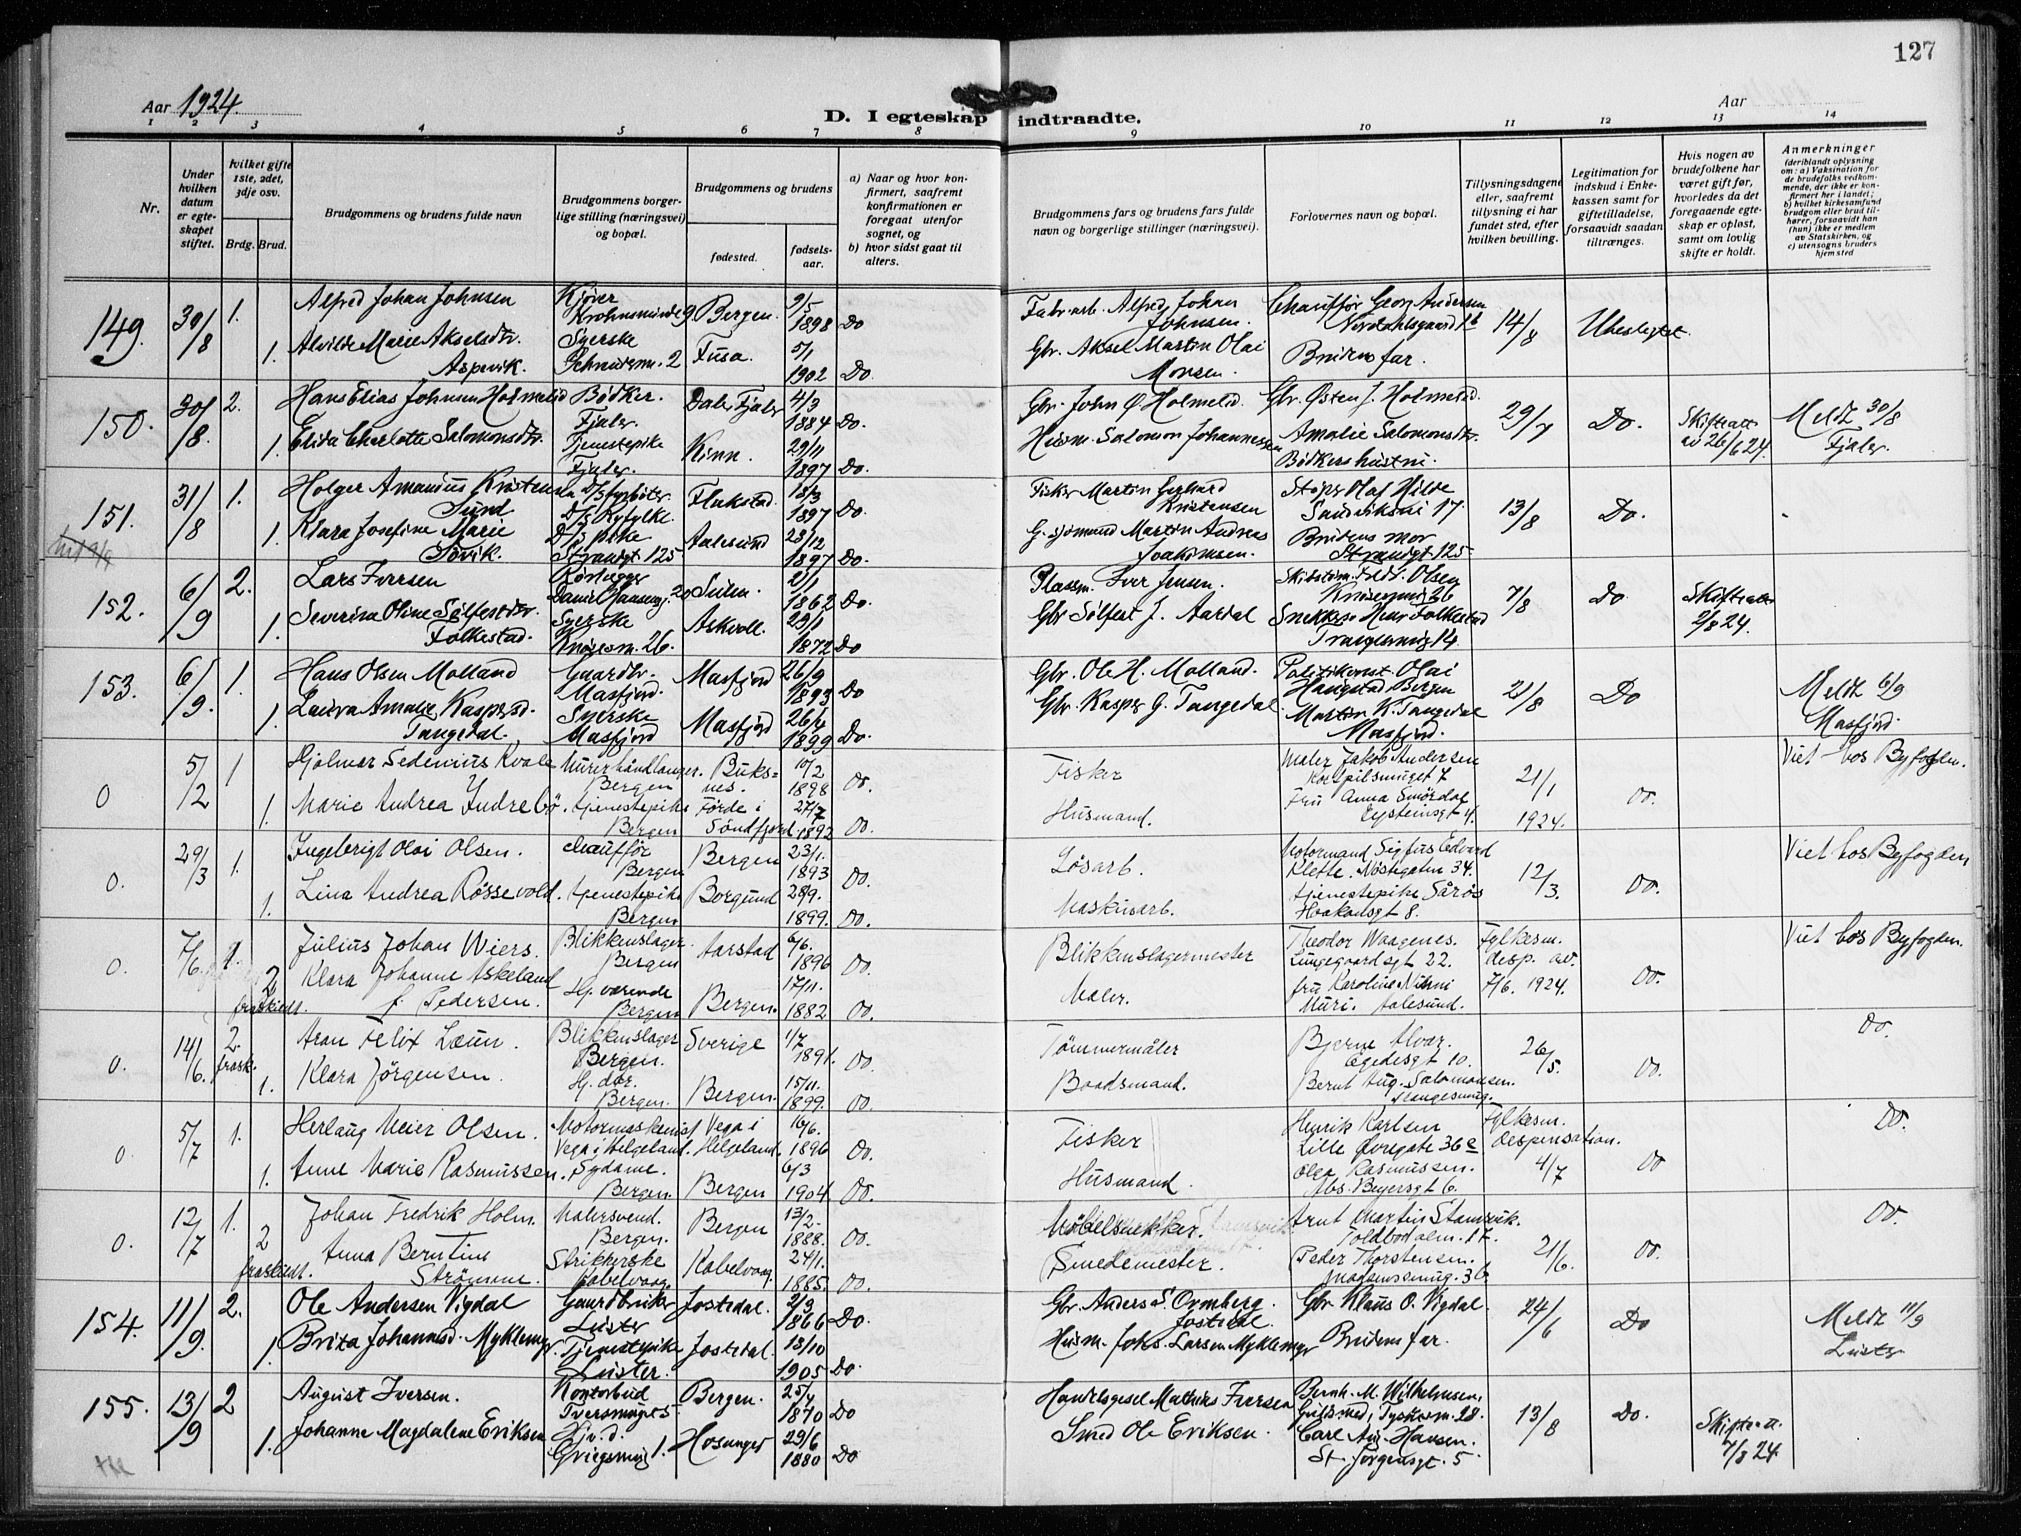 127
Aar 1924.
Aar
D. I egteskap indtraadte.
1 2 3 4 5 6 7 8 9 10 11 12 13 14
Nr.
Under hvilken datum er egteskapet stiftet.
hvilket gifte 1ste, 2det, 3dje osv.
Brdg. Brud.
Brudgommens og brudens fulde navn
Brudgommens borgerlige stilling (næringsvei) og bopæl.
Brudgommens og brudens
fødested.
fødselsaar.
a) Naar og hvor konfirmert, saafremt konfirmationen er foregaat utenfor sognet, og
b) hvor sidst gaat til alters.
Brudgommens fars og brudens fars fulde navn og borgerlige stillinger (næringsvei).
Forlovernes navn og bopæl.
Tillysningsdagene eller, saafremt tillysning ei har fundet sted, efter hvilken bevilling.
Legitimation for indskud i Enkekassen samt for giftetilladelse, forsaavidt saadan tiltrænges.
Hvis nogen av brudefolkene har været gift før, hvorledes da det foregaaende egteskap er opløst, samt om lovlig skifte er holdt.
Anmerkninger
(deriblandt oplysning om: a) Vaksination for de brudefolks vedkommende, der ikke er konfirmert her i landet; b) hvilket kirkesamfund brudgom eller brud tilhører, forsaavidt han (hun) ikke er medlem av Statskirken, og c) utensogns bruders hjemsted
149. 30/8 1. Alfred Johan Johnsen Kjører Bergen. 9/5 1898 Do Fabr.arb. Alfred Johan Johnsen. Chauffør Georg Andersen 14/8 Ubeslegtet.
1. Alvilde Marie Akselsdtr. Aspevik. Syerske 2 Fusa. 5/1 1902 Do. Gbr. Aksel Martin Olai Monsen. Brudens far.
150. 30/8. 2. Hans Elias Johnsen Holmelid Bødker. Fjaler Dale, Fjaler 4/3 1884 Do. Gbr. John Ø. Holmelid. Gbr. Østen J. Holmelid. 29/7 Do. Skifteatt. 26/6 24. Meldt 30/8 Fjaler.
1. Elida Charlotte Salomonsdtr. Tjenestepike Fjaler. Kinn. 29/11 1897 Do. Husm. Salomon Johannessen Amalie Salomonsdtr. Bødkers hustru.
151. 31/8 1. Holger Amandus Kristensen Sund D/S Ryfylke. Flakstad. 18/3 1897 Do. Fisker Martin Gerhard Kristensen Støper Olaf Hilde Sandviksvei 17. 13/8 Do.
1. Klara Josefine Marie Tovik. Strandgt 125 Aalesund 23/12 1897 Do. Martin Andreas Joakimsen. Brudens mor Strandgt 125
152. 6/9 2. Lars Iversen Rørlegger 20 Sulen. 2/1 1862 Do. Plassm. Iver Jensen. Fredr. Olsen 7/8 Do Skifteatt. 2/8 24.
1. Severina Oline Sølfestdtr. Folkestad. Syerske Knøsesm. 26. Askvoll. 29/1 1872 Do Gbr Sølfest J. Aardal Snekker Folkestad 14.
153. 6/9. 1. Hans Olsen Molland Gaardbr. Masfjord. Masfjord 26/9 1893 Do Gbr. Ole H. Molland. Politikonst. Olai Haugstad Bergen 21/8 Do Meldt 6/9 Masfjord.
1. Laura Amalie Kaspersd. Tangedal. Syerske Masfjord Masfjord 26/4 1899 Do. Gbr. Kasper G. Tangedal. Martin K. Tangedal Masfjord.
0 5/2 1 Hjalmar Sedenius Kvale Murerhåndlanger. Bergen Buksnes. 10/2 1898 Do. Fisker Maler Jakob Andersen Korpilsmuget 7 21/1 1924. Do. Viet hos Byfogden.
1. Marie Andrea Yndrebö. tjenestepike Bergen Förde i Söndfjord 27/7 1892 Do. Husmand. Fru Anna Smördal Eysteinsgt 4.
0. 29/3 1. Ingebrigt Olai Olsen. chaufför Bergen Bergen 23/1. 1893 Do. Løsarb. Motormand Sigfus Edvard Klette. Nöstegaten 34. 12/3. Do. Viet hos Byfogden
1. Lina Andrea Røssevold. tjenestepike Bergen Borgund 28/9. 1899. Do. Maskinarb. tjenestepike Haakonsgt 8.
0. 7/6. 1. Julius Johan Wiers. Blikkenslager. Bergen Aarstad 6/6. 1896 Do. Blikkenslagermester Theodor Waagenes. Lungegaardsgt 22. Fylkesm. desp. av. 7/6. 1924. Do. Viet hos Byfogden.
2 fraskilt. Klara Johanne Askeland f. Pedersen. Hj. værende Bergen Bergen. 17/11. 1882 Do. Maler. fru Karoline Muri. Aalesund.
0. 14/6. 2. frask. Aron Felix Læun. Blikkenslager Bergen. Sverige 1/7 1891. Do. Tömmermåler Bjarne Alvær. Egedesgt 10. 26/5. Do. Do.
1. Klara Jørgensen. Hj. vær. Bergen. Bergen. 15/11. 1899. Do. Baadsmand. Bernt Aug. Salomonsen.
0 5/7 1. Herlaug Meier Olsen. Motormaskinist Vega i Helgeland. Vega i Helgeland. 16/6. 1896 Do. Fisker Henrik Karlsen Lille Øvregate 36e Fylkesm. despensation. 4/7 Do Do.
1. Anne Marie Rasmussen. Sydame. Bergen. Bergen 6/3 1904. Do. Husmand. Olga Rasmussen. Abs. Beyersgt 6.
0. 12/7 1. Johan Fredrik Holm. Malersvend. Bergen. Bergen 13/2. 1888. Do. Möbelsnekker. Arnt Martin Stamsvik. Toldbodalm. 17. 21/6. Do. Do.
2 fraskilt. Anna Berntine Strömme. Strikkerske Kabelvaag. Kabelvaag. 24/1. 1885. Do. Smedemester. Peder Thorstensen. 36
154. 11/9. 2. Ole Andersen Vigdal Gaardbruker Luster Jostedal. 2/3 1866 Do. Gbr. Anders S. Ormberg. Jostedal. Gbr. Klaus O. Vigdal. 24/6 Do Meldt 11/9 Luster
1. Brita Johannesd. Myklemyr. Tjenestepike Luster. Jostedal. 13/10 1905 Do Husm. Johs. Larsen Myklemyr Brudens far.
155. 13/9 2 August Iversen. Kontorbud Tversmuget 5 Bergen. 25/4 1870 Do Handelsgesel Mathias Iversen Bernh. M. Wilhelmsen, Guldsmed, Tyskesm. 28. 13/8 Do. Skifteatt. 7/8 24.
1. Johanne Magdalene Eriksen Hj. v.d. Griegsmug 1. Hosanger 29/6 1880 Do Smed Ole Eriksen. Carl Aug. Hansen. St. Jørgensgt. 5